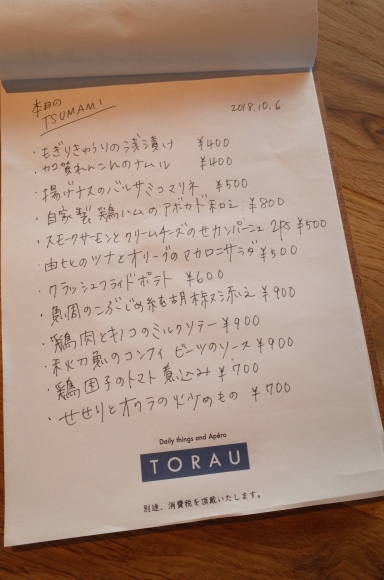 本日の
TSUMAMI
2018.10.6
・もぎりきゅうりの浅漬け ¥400
・加賀れんこんのナムル ¥400
・揚げナスのバルサミコマリネ ¥500
・自家製鶏ハムのアボカド和え ¥800
・スモークサーモンとクリームチーズのせカンパーニュ 2ps ¥500
・由比のツナとオリーブのマカロニサラダ ¥500
・クラッシュフライドポテト ¥600
・真鯛のこぶじめ 純胡椒添え ¥900
・鶏肉とキノコのミルクソテー ¥900
・秋刀魚のコンフィ ビーツのソース ¥900
・鶏団子のトマト煮込み ¥700
・せせりとオクラの炒めもの ¥700
Daily things and Apéro
TORAU
別途、消費税を頂戴いたします。